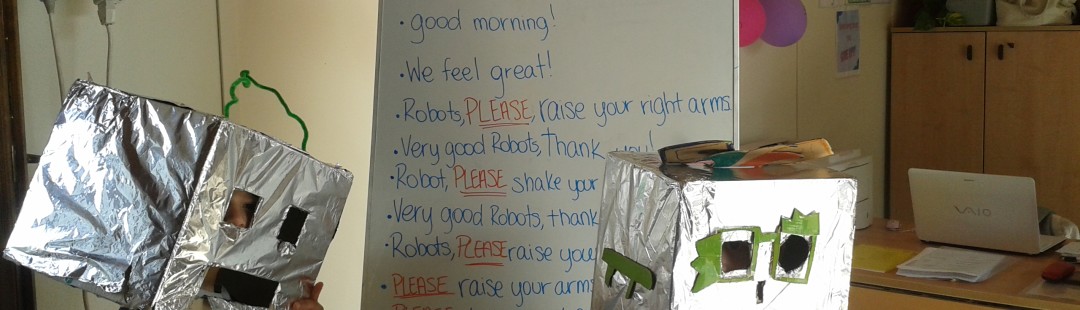 • good morning!
• We feel great!
• Robots, PLEASE, raise your right arms
• Very good Robots, thank you!
• Robot, PLEASE shake your
• Very good Robots, thank
• Robots, PLEASE raise your
• PLEASE raise your arms
PLEASE
VAIO